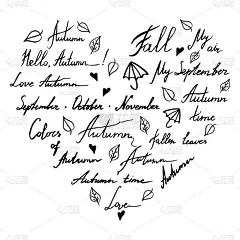 Autumn
Hello, Autumn !
Love Autumn
Fall
My air
My September
September · October · November
Autumn
time
Colors
of
Autumn
Autumn
fallen leaves
Autumn
Autumn
Autumn time
Love